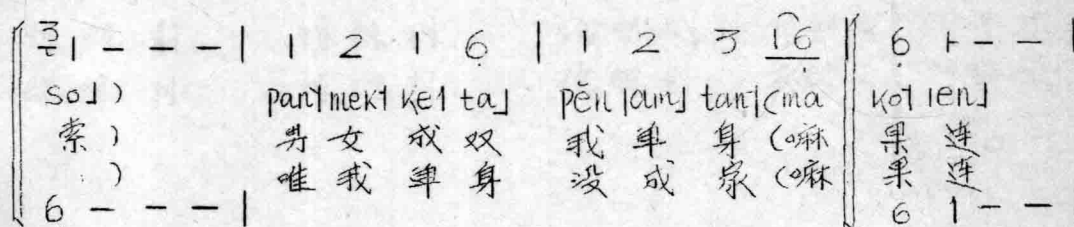 3̲1 - - - | 1 2 1 6̣ | 1 2 3 1̲6̣̲ ‖ 6̣ 1 - - |
so˩) pan˥ mek˧ ke˧ ta˩ pĕn lam˩ tan˥ (ma ko˥ len˩
索 ) 男 女 成 双 我 单 身 (嘛 果 连
) 唯 我 单 身 没 成 家 (嘛 果 连
6 - - - | 6 1 - -